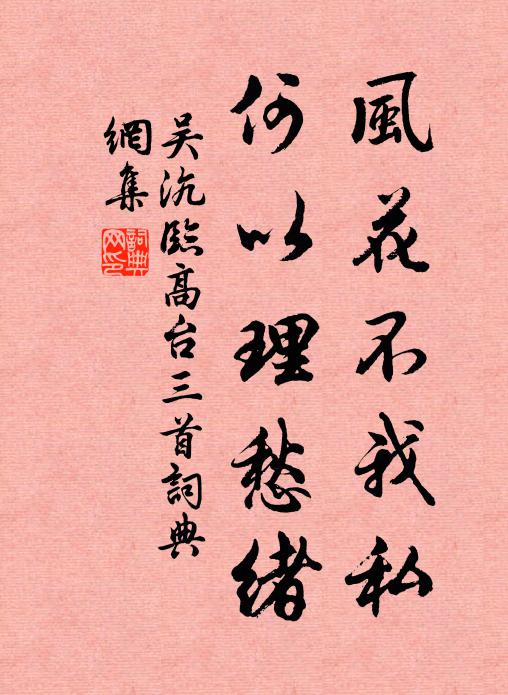 風花不我私
何以理愁緒
吴沉臨高台三首詞典
網集
詞典網印